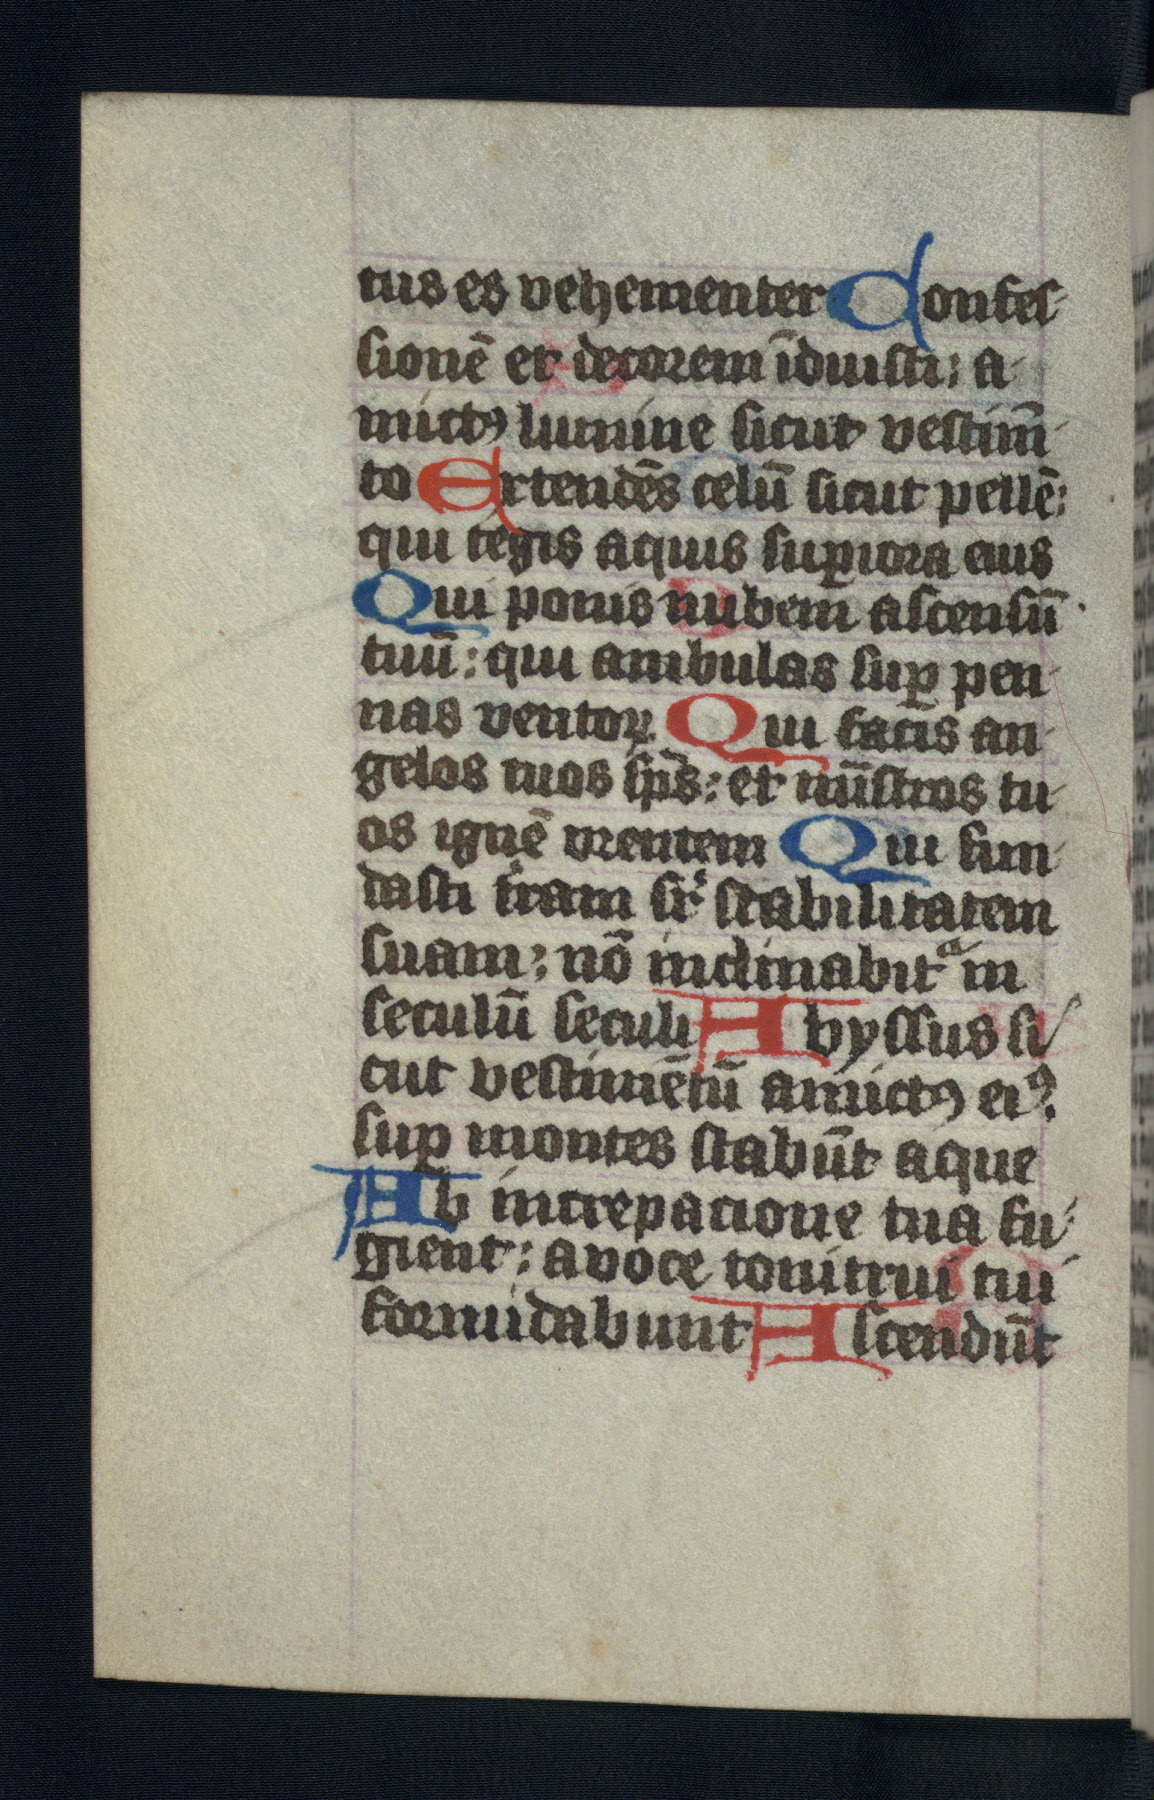 tus es vehementer Confes-
sionē et decorem īduisti: a-
mictꝰ lumine sicut vestim̄-
to Extendēs celū sicut pellē:
qui tegis aquis suꝑiora eius
Qui ponis nubem ascensū
tuū: qui ambulas suꝑ pen-
nas ventoꝝ Qui facis an-
gelos tuos sp̄s: et mīstros tu-
os ignē vrentem Qui fun-
dasti t̓ram sr̄ stabilitatem
suam: nō inclinabitᵃ in
seculū seculi Abyssus si-
cut vestimētū amictꝰ eiꝰ:
suꝑ montes stabūt aque
Ab increpacione tua fu-
gient: a voce tonitrui tui
formidabunt Ascendūt